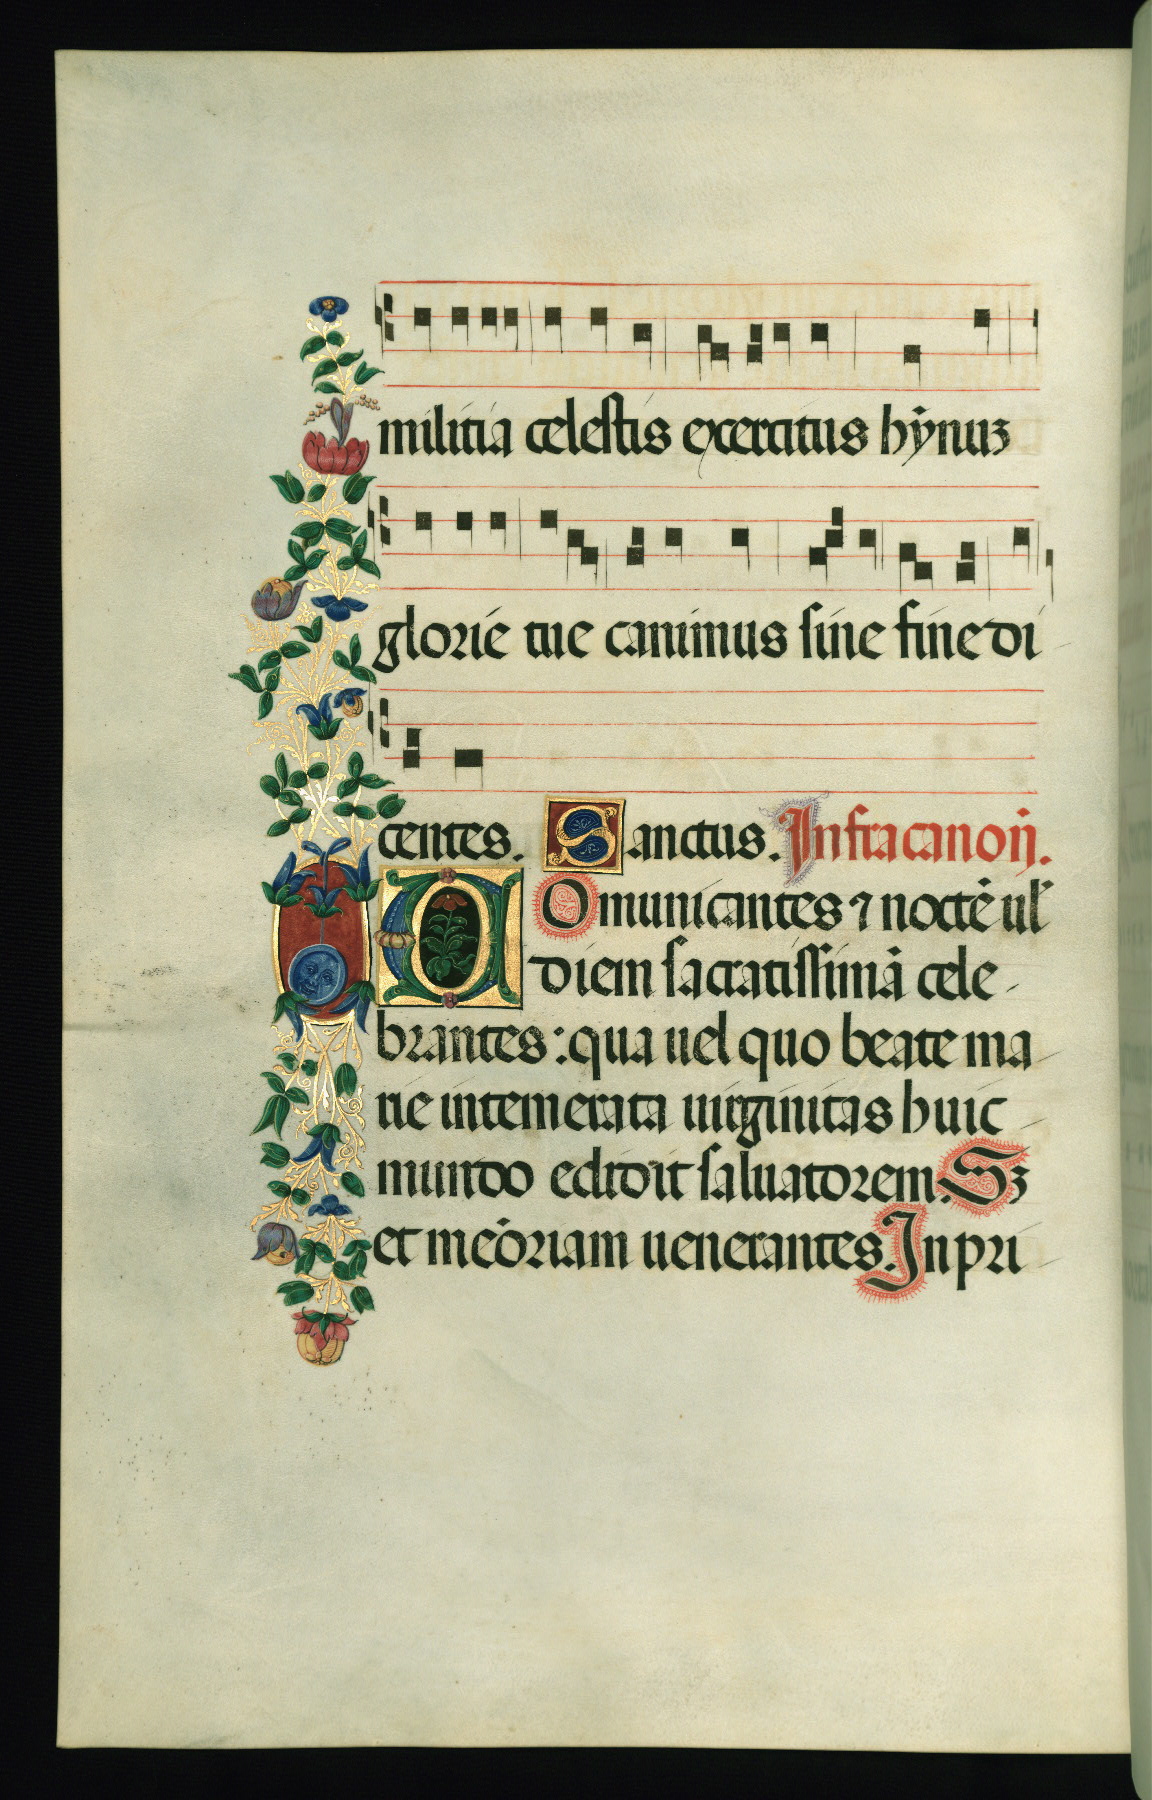 militia celestis exercitus hỹnuʒ
glorie tue canimus sine fine di
centes. Sanctus. Infra canoñ.
COmunicantes ⁊ noctē ul̄
diem sacratissimā cele-
brantes: qua uel quo beate ma-
rie intemerata uirginitas huic
mundo edidit saluatorem. Sʒ
et meōriam uenerantes. In pri-